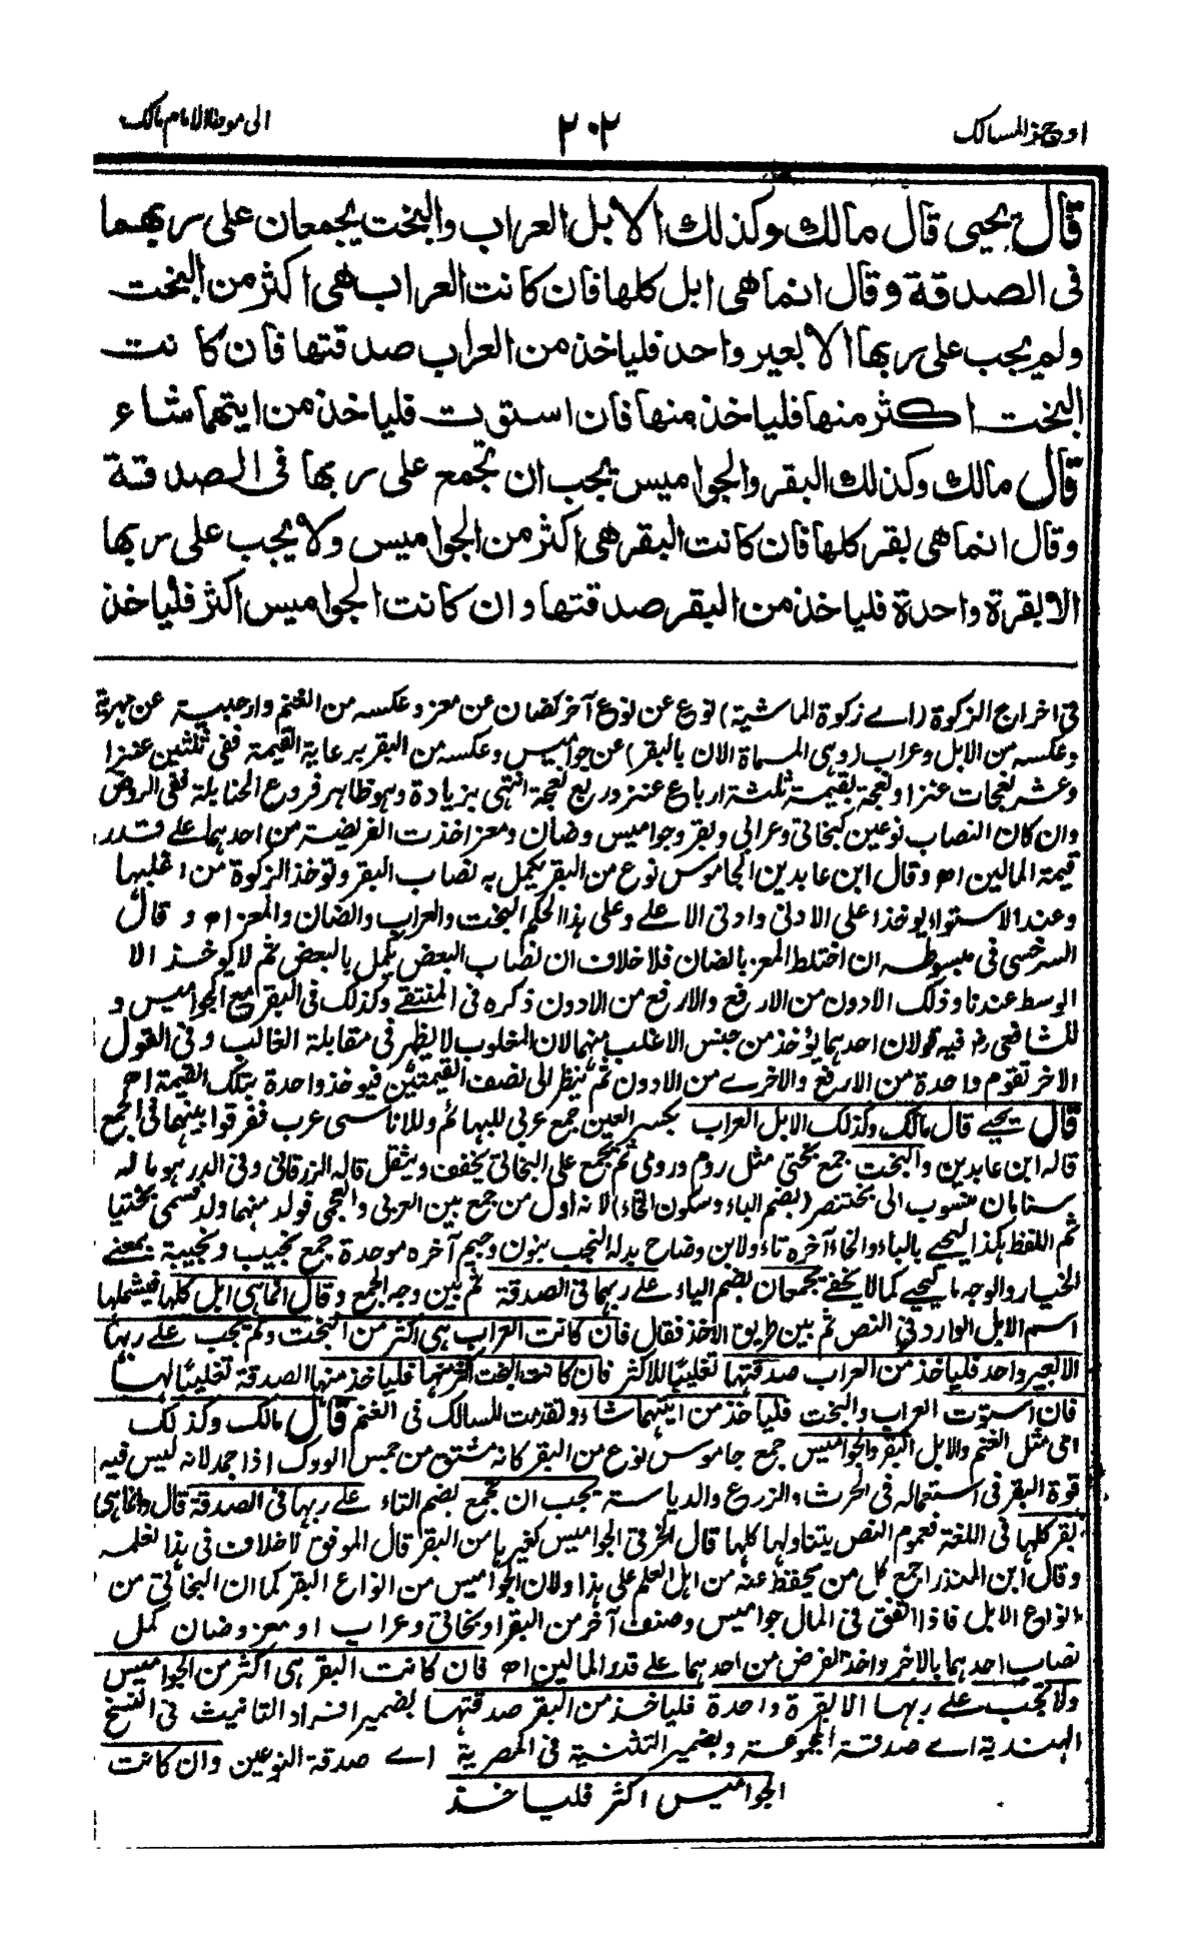 اوجز المسالك
٢٠٢
الى موطا الامام مالك
قال يحيى قال مالك وكذلك الابل العراب والبخت يجمعان على ربهما
فى الصدقة وقال انما هى ابل كلها فان كانت العراب هى اكثر من البخت
ولم يجب على ربها الا بعير واحد فلياخذ من العراب صدقتها فان كانت
البخت اكثر منها فلياخذ منها فان استوت فلياخذ من ايتهما شاء
قال مالك وكذلك البقر والجواميس يجب ان تجمع على ربها فى الصدقة
وقال انما هى بقر كلها فان كانت البقر هى اكثر من الجواميس ولا يجب على ربها
الا بقرة واحدة فلياخذ من البقر صدقتها وان كانت الجواميس اكثر فلياخذ
فى اخراج الزكوة (اے زكوة الماشية) نوع عن نوع آخر كضان عن معز وعكسه من الغنم وارحبية عن مهرية
وعكسه من الابل وعراب (وهى المسماة الان بالبقر) عن جواميس وعكسه من البقر برعاية القيمة ففى ثلثين عنزا
وعشر نعجات عنزا ونعجة بقيمة ثلثة ارباع عنز وربع نعجة انتهى بزيادة وهو ظاهر فروع الحنابلة ففى الروض
وان كان النصاب نوعين كبخاتى وعرابى وبقر وجواميس وضان ومعز اخذت الفريضة من احدهما على قدر
قيمة المالين اھ وقال ابن عابدين الجاموس نوع من البقر يكمل به نصاب البقر وتوخذ الزكوة من اغلبها
وعند الاستواء يوخذ اعلى الادنى وادنى الاعلے وعلى هذا الحكم البخت والعراب والضان والمعز اھ و قال
السرخسى فى مبسوطه ان اختلط المعز بالضان فلا خلاف ان نصاب البعض يكمل بالبعض ثم لا يوخذ الا
الوسط عندنا وذلك الادون من الارفع والارفع من الادون ذكره فى المنتقے وكذلك فى البقر مع الجواميس و
للشافعى رم فيه قولان احدهما يؤخذ من جنس الاغلب منهما لان المغلوب لا يظهر فى مقابلة الغالب وفى القول
الاخر تقوم واحدة من الارفع والاخرے من الادون ثم ينظر الى نصف القيمتين فيوخذ واحدة بتلك القيمة اھ
قال يحيے قال مالك وكذلك الابل العراب بكسر العين جمع عربى للبهائم وللاناسى عرب ففرقوا بينهما فى الجمع
قاله ابن عابدين والبخت جمع بختى مثل روم ورومى ثم يجمع على البخاتى يخفف ويثقل قاله الزرقانى وفى الدر هو ما له
سنامان منسوب الى بختنصر (بضم الباء وسكون الخاء) لانه اول من جمع بين العربى والعجمى فولد منهما ولد فسمى بختيا
ثم اللفظ هكذا ليحيے بالباء والخاء آخره تاء ولابن وضاح بدله النجب بنون وجيم آخره موحدة جمع نجيب ونجيبة بمعنے
الخيار والوجه ما ليحيے كما لا يخفے يجمعان بضم الياء علے ربهما فى الصدقة ثم بين وجه الجمع وقال انما هى ابل كلها فيشملها
اسم الابل الوارد فى النص ثم بين طريق الاخذ فقال فان كانت العراب هى اكثر من البخت ولم يجب علے ربها
الا بعير واحد فلياخذ من العراب صدقتها تغليبا للاكثر فان كانت البخت اكثر منها فلياخذ منها الصدقة تغليبا لها
فان استوت العراب والبخت فلياخذ من ايتهما شاء وتقدمت المسالك فى الغنم قال مالك وكذلك
اى مثل الغنم والابل البقر والجواميس جمع جاموس نوع من البقر كانه مشتق من جمس الودك اذا جمد لانه ليس فيه
قوة البقر فى استعماله فى الحرث والزرع والدياسة يجب ان تجمع بضم التاء علے ربها فى الصدقة قال وانما هى
بقر كلها فى اللغة فعموم النص يتناولها كلها قال الخرقى الجواميس كغيرها من البقر قال الموفق لا خلاف فى هذا نعلمه
وقال ابن المنذر اجمع كل من يحفظ عنه من اهل العلم على هذا ولان الجواميس من انواع البقر كما ان البخاتى من
انواع الابل فاذا اتفق فى المال جواميس وصنف آخر من البقر او بخاتى وعراب او معز وضان كمل
نصاب احدهما بالاخر واخذ الفرض من احدهما علے قدر المالين اھ فان كانت البقر هى اكثر من الجواميس
ولا تجب علے ربها الا بقرة واحدة فلياخذ من البقر صدقتها بضمير افراد التانيث فى النسخ
الهندية اے صدقة المجموعة وبضمير التثنية فى المصرية اے صدقة النوعين وان كانت
الجواميس اكثر فلياخذ